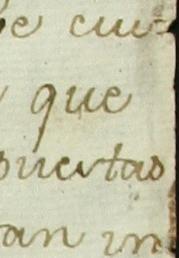 e cui-
que
puertas
an in